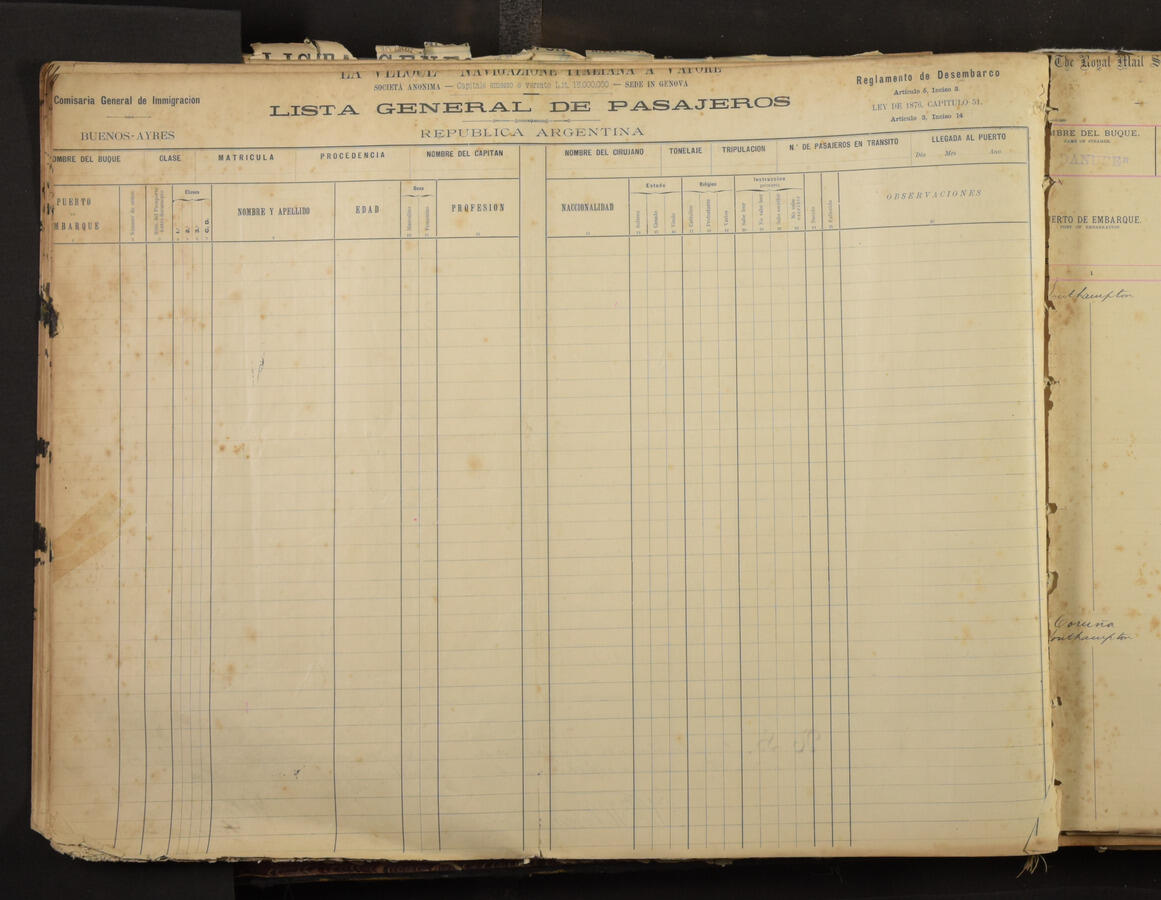 LISTA GENE
LA VELOCE NAVIGAZIONE ITALIANA A VAPORE
SOCIETÀ ANONIMA — Capitale emesso e versato Lit. 15.000.000 — SEDE IN GENOVA
Comisaria General de Immigración
LISTA GENERAL DE PASAJEROS
Reglamento de Desembarco
Artículo 5, Inciso 3.
LEY DE 1876, CAPITULO 51.
Artículo 3, Inciso 14
BUENOS-AYRES
REPUBLICA ARGENTINA
OMBRE DEL BUQUE CLASE MATRICULA PROCEDENCIA NOMBRE DEL CAPITAN NOMBRE DEL CIRUJANO TONELAJE TRIPULACION N.º DE PASAJEROS EN TRANSITO LLEGADA AL PUERTO
Dia Mes Ano
PUERTO
MBARQUE
Clases
1.ª
2.ª
3.ª
NOMBRE Y APELLIDO
EDAD
Sexo
Masculino
Femenino
PROFESION
NACCIONALIDAD
Estado
Soltero
Casado
Viudo
Religion
Catholico
Protestante
Varios
Instruccion
Sabe leer
No sabe leer
Sabe escribir
No sabe escribir
OBSERVACIONES
The Royal Mail S
MBRE DEL BUQUE.
NAME OF STEAMER.
"DANUBE"
ERTO DE EMBARQUE.
PORT OF EMBARKATION
1
outhampton
Coruña
outhampton